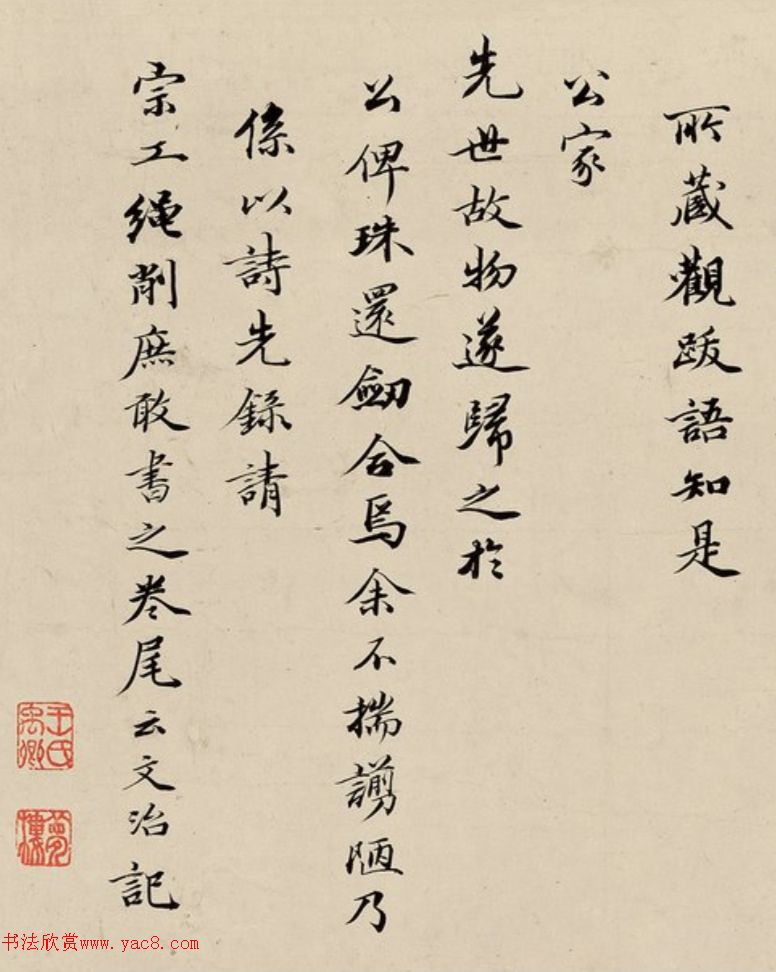 所藏觀跋語知是
公家
先世故物遂歸之於
公俾珠還劒合焉余不揣謭陋乃
係以詩先錄請
宗工繩削庶敢書之卷尾云文治記
王氏禹卿
夢樓
书法欣赏www.yac8.com